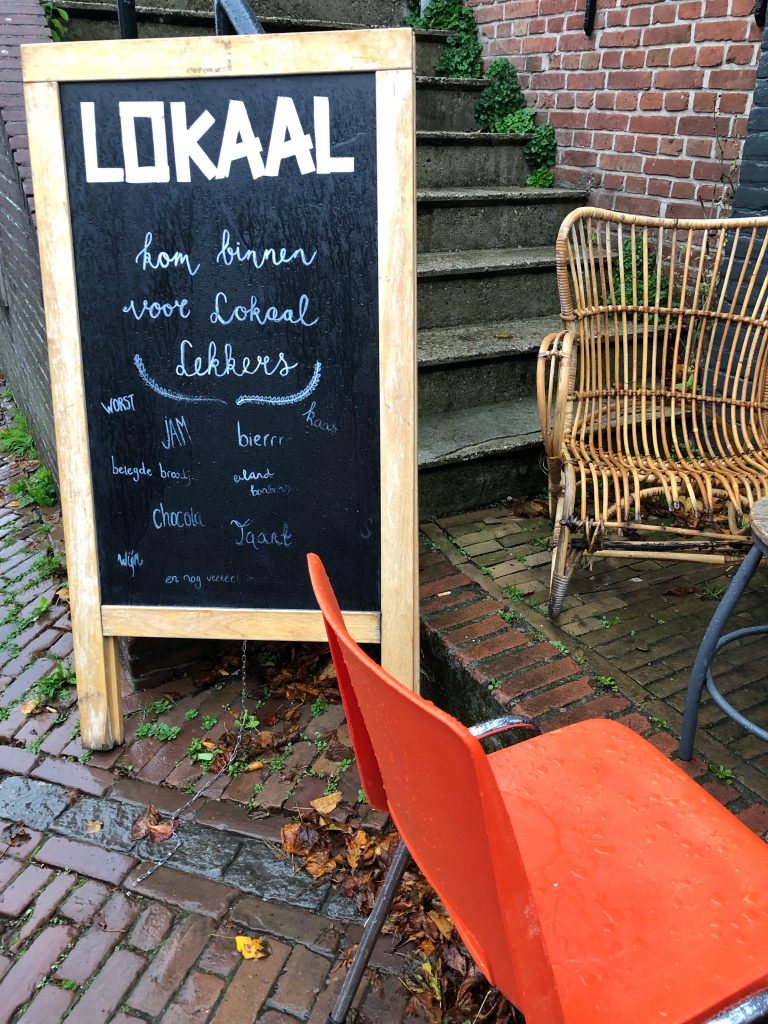 LOKAAL
kom binnen
voor Lokaal
Lekkers
WORST
kaas
JAM
bierrr
belegde broodj
chocola
Taart
wijn
en nog veeeel